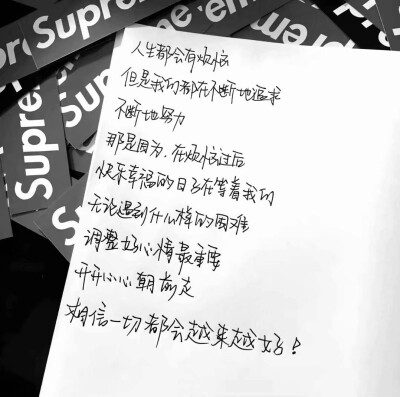 人生都会有烦恼
但是我们都在不断地追求
不断地努力
那是因为,在烦恼过后
快乐幸福的日子在等着我们
无论遇到什么样的困难
调整好心情最重要
开开心心朝前走
相信一切都会越来越好!
Supreme
Supreme
Supreme
Supreme